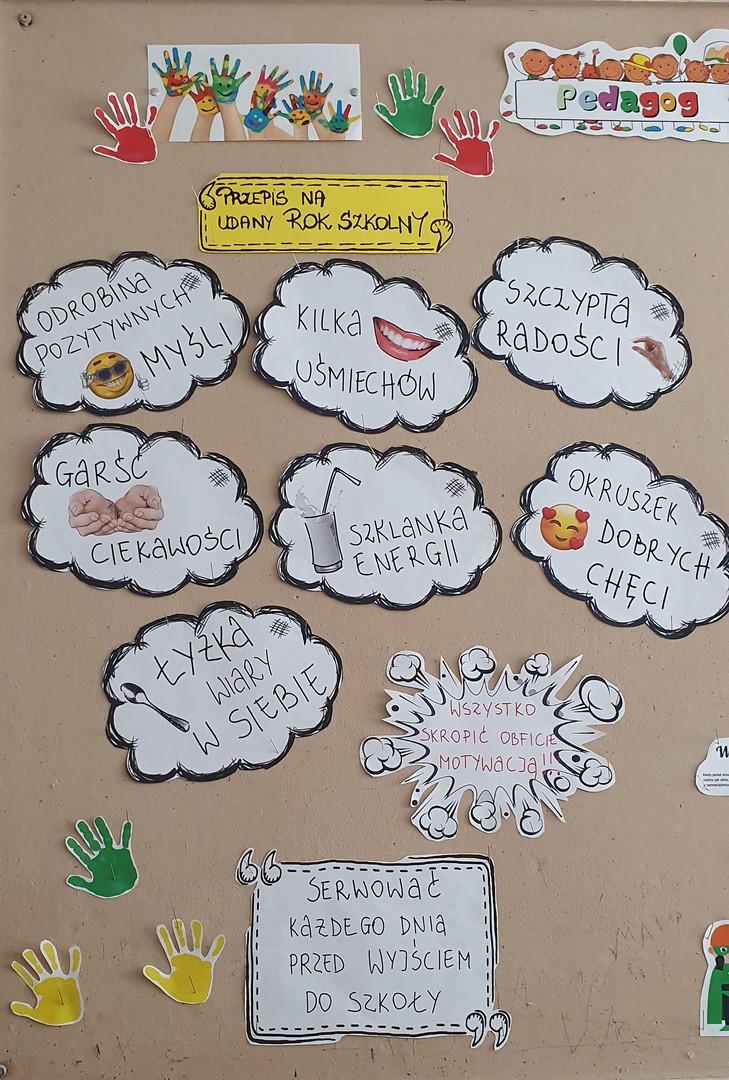 Pedagog
PRZEPIS NA
UDANY ROK SZKOLNY
ODROBINA
POZYTYWNYCH
MYŚLI
KILKA
UŚMIECHÓW
SZCZYPTA
RADOŚCI
GARŚĆ
CIEKAWOŚCI
SZKLANKA
ENERGII
OKRUSZEK
DOBRYCH
CHĘCI
ŁYŻKA
WIARY
W SIEBIE
WSZYSTKO
SKROPIĆ OBFICIE
MOTYWACJĄ!!!
SERWOWAĆ
KAŻDEGO DNIA
PRZED WYJŚCIEM
DO SZKOŁY